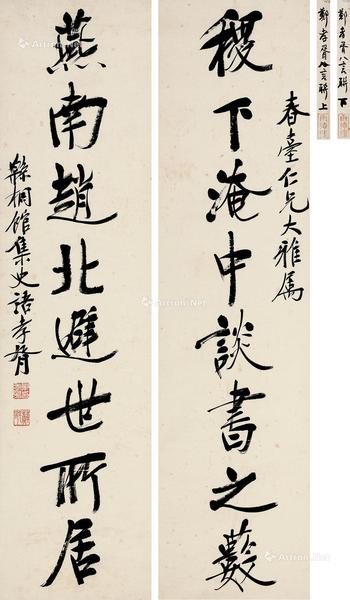 春臺仁兄大雅属
稷下淹中談書之藪
燕南趙北避世所居
集史語孝胥
鄭孝胥八言联 上
鄭孝胥八言联 下